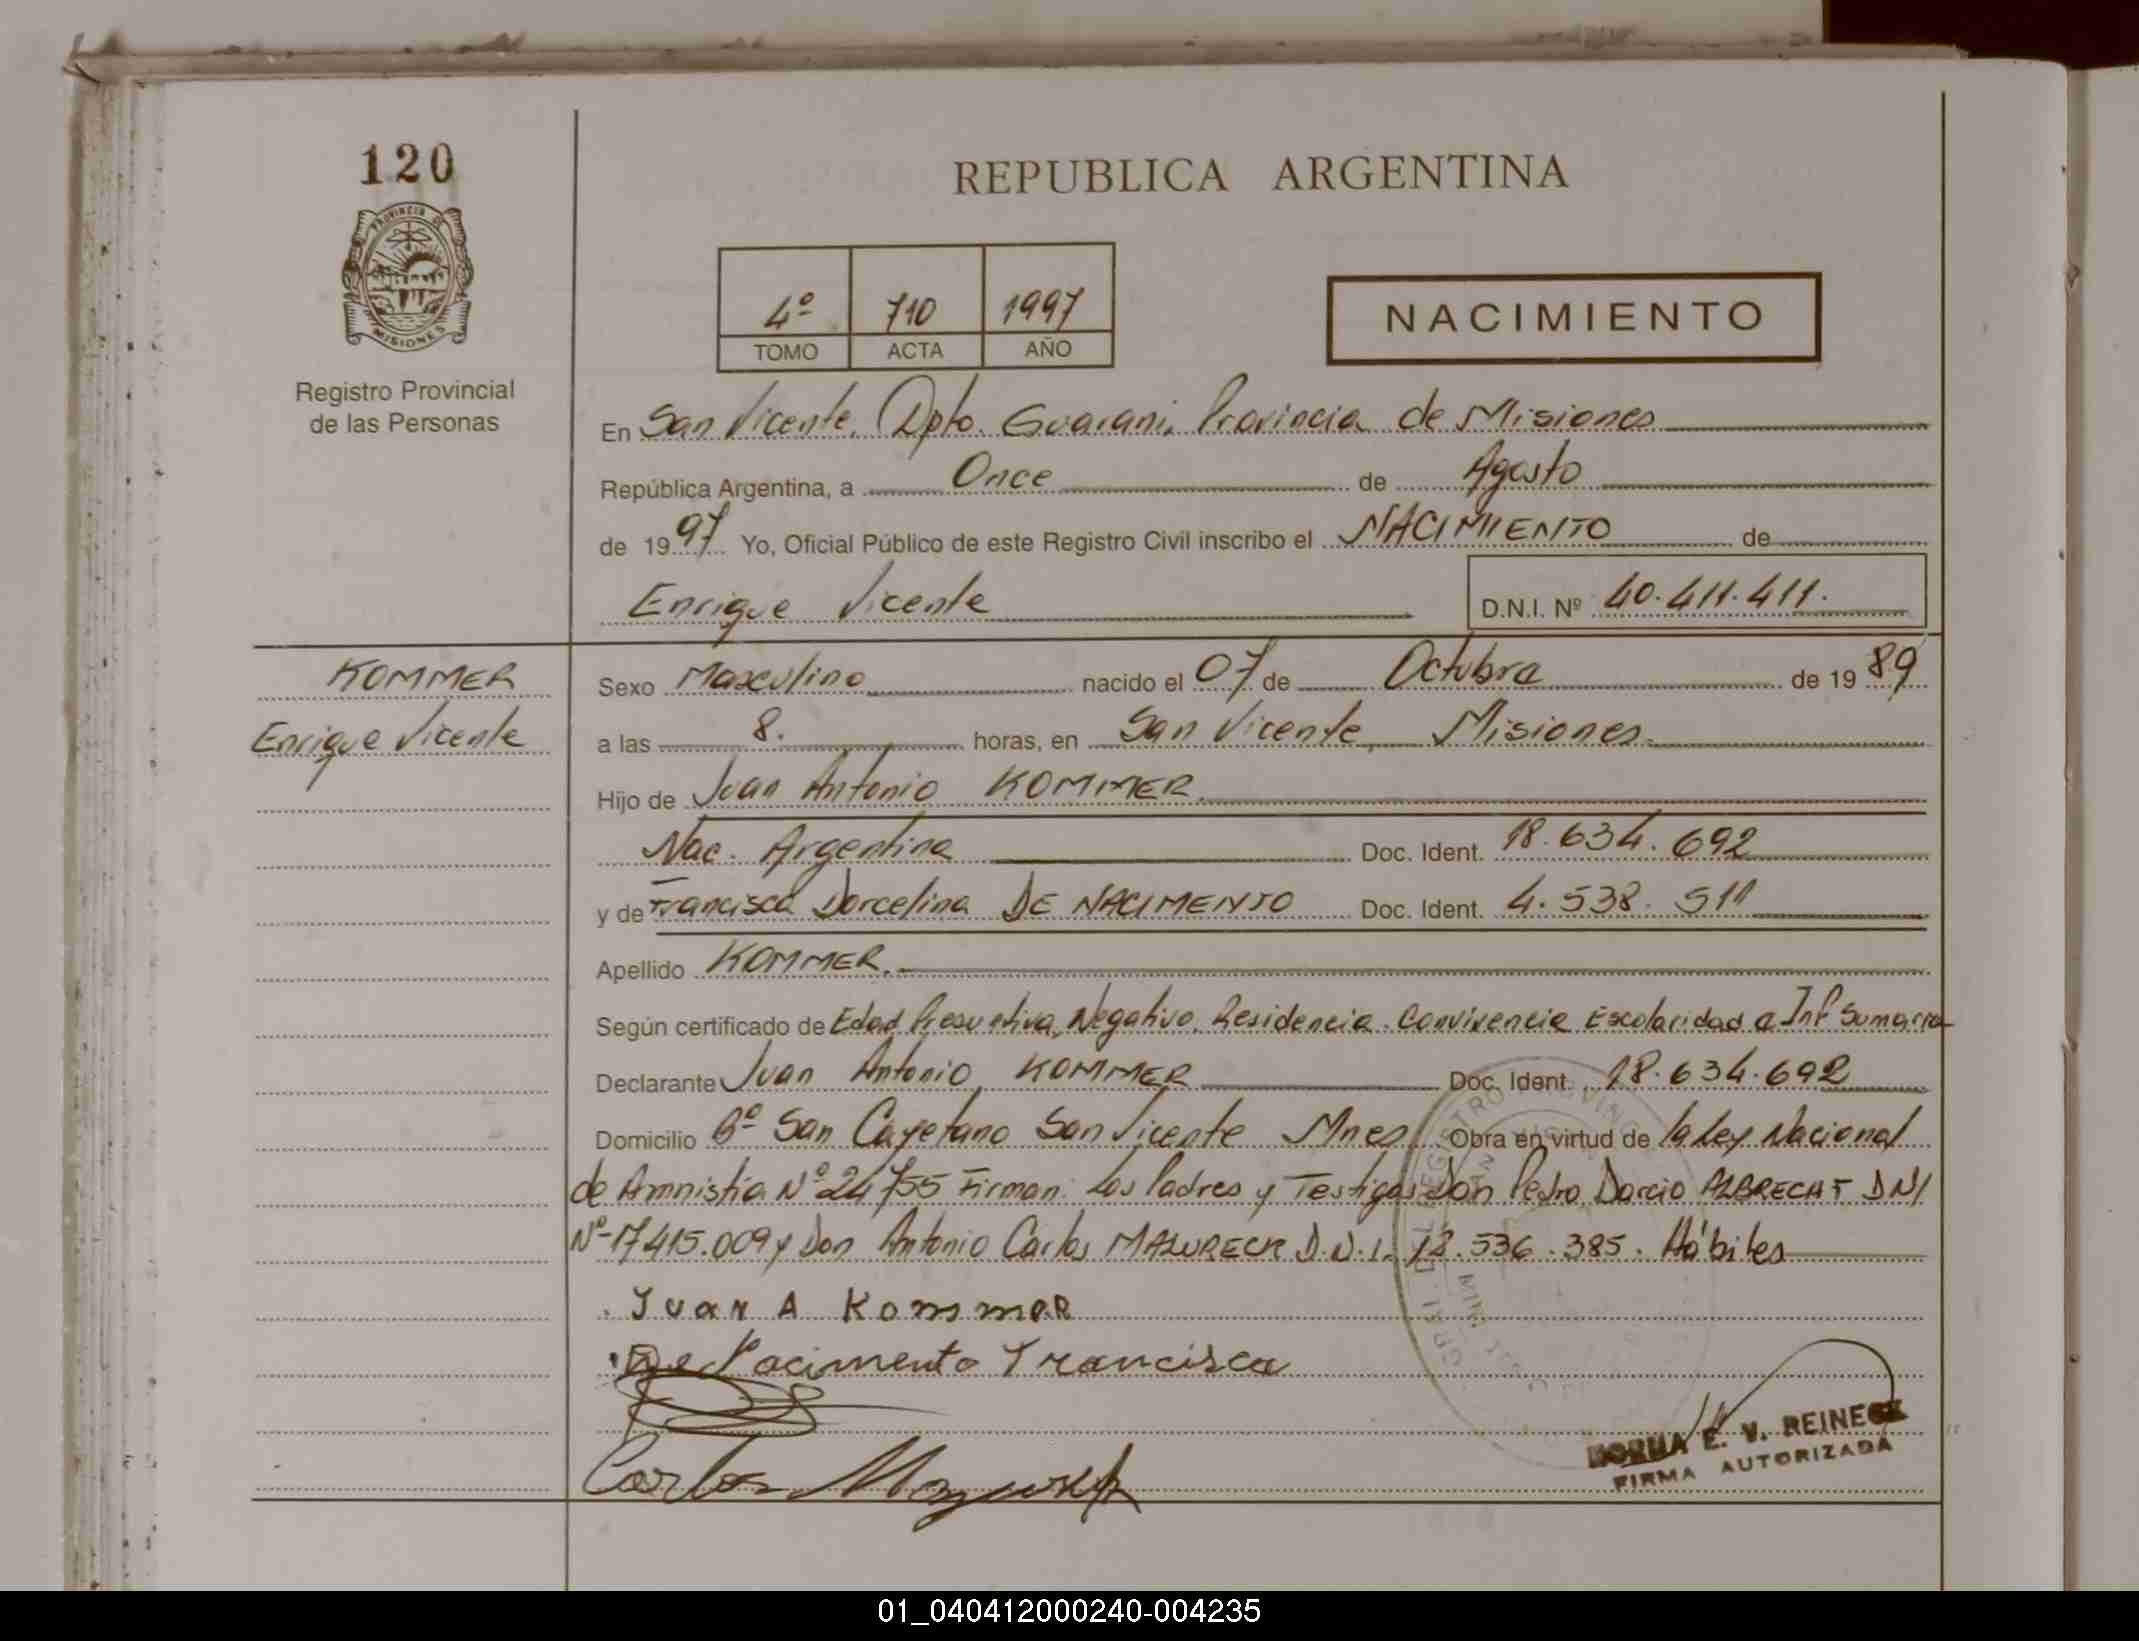 120
PROVINCIA DE
MISIONES
Registro Provincial
de las Personas
REPUBLICA ARGENTINA
4º 710 1997
TOMO ACTA AÑO
NACIMIENTO
En San Vicente, Dpto. Guarani, Provincia de Misiones
República Argentina, a Once de Agosto
de 1997 Yo, Oficial Público de este Registro Civil inscribo el NACIMIENTO de
Enrique Vicente D.N.I. Nº 40.411.411.
KOMMER
Enrique Vicente
Sexo Masculino nacido el 07 de Octubre de 1989
a las 8. horas, en San Vicente, Misiones.
Hijo de Juan Antonio KOMMER
Nac. Argentina Doc. Ident. 18.634.692
y de Francisca Dorcelina DE NACIMENTO Doc. Ident. 4.538.511
Apellido KOMMER.
Según certificado de Edad Presuntiva, Negativo, Residencia. Convivencia Escolaridad e Inf Sumarra
Declarante Juan Antonio KOMMER Doc. Ident. 18.634.692
Domicilio Bº San Cayetano San Vicente Mnes. Obra en virtud de la ley Nacional
de Amnistia Nº 24755 Firman: Los Padres y Testigos Don Pedro Darcio ALBRECHT DNI
Nº 17415.009 y Don Antonio Carlos D.N.I. 12.536.385. Hábiles
Juan A Kommer
De Nacimento Francisca
Carlos
NORMA E. V. REINECK
FIRMA AUTORIZADA
01_040412000240-004235